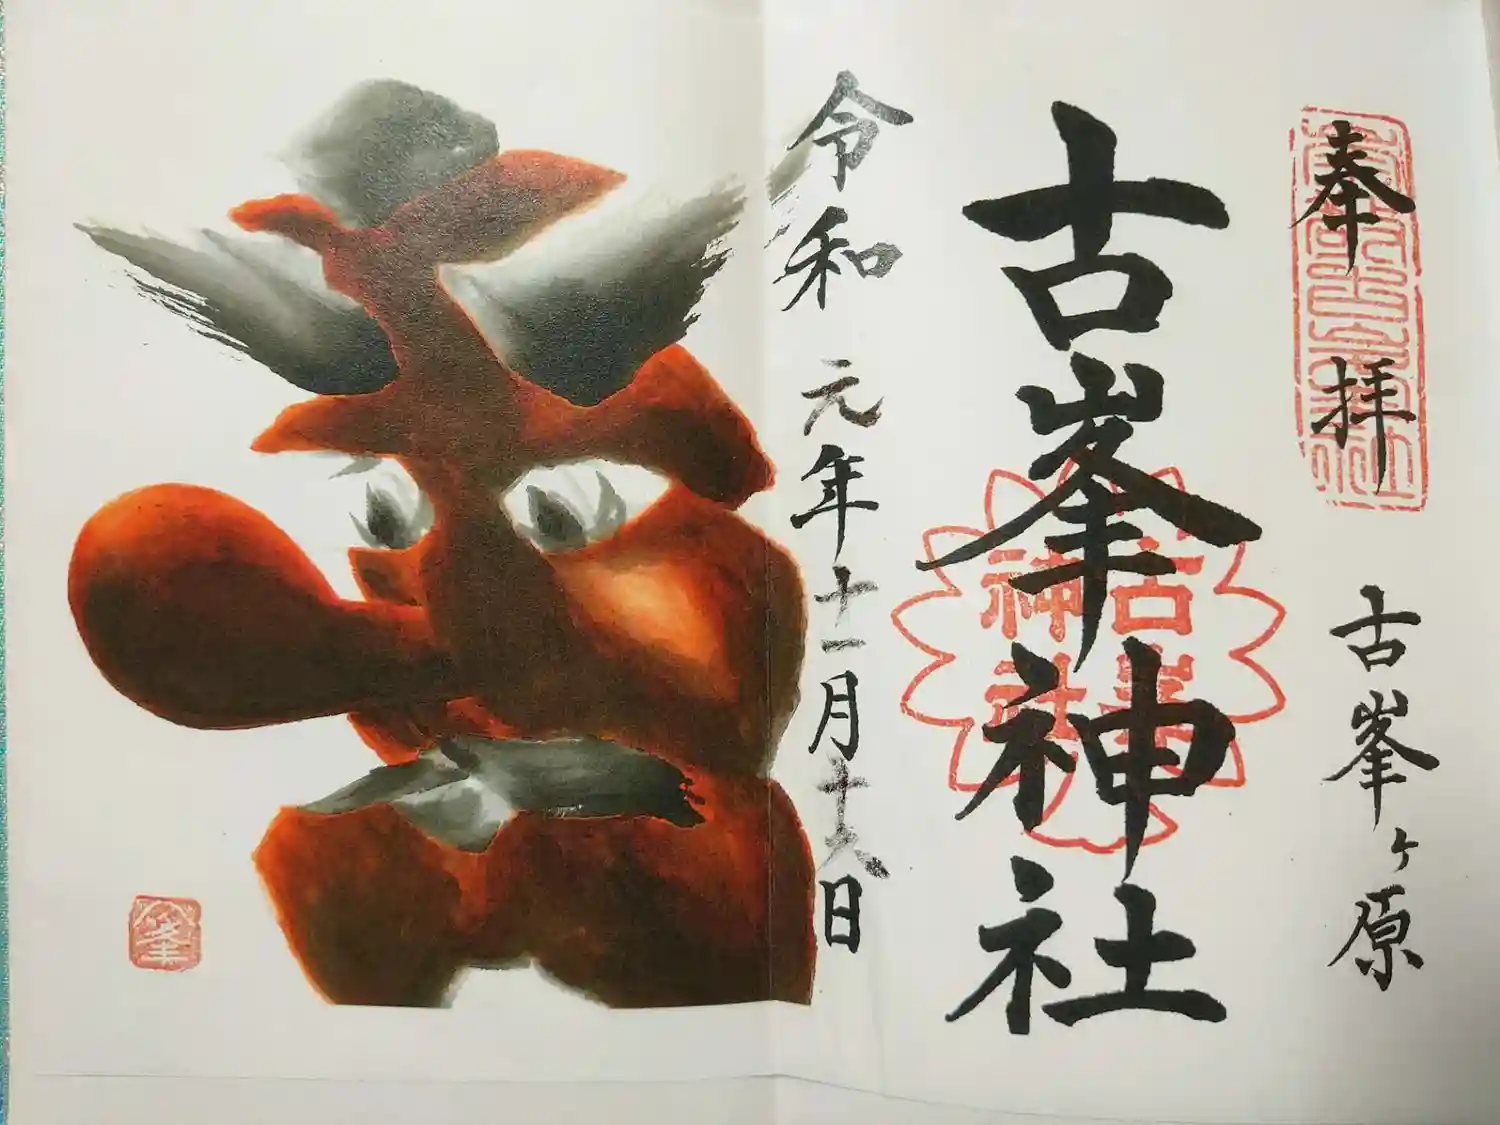 奉拝
古峯ヶ原
古峯神社
古峯神社
令和元年十一月十六日
峯